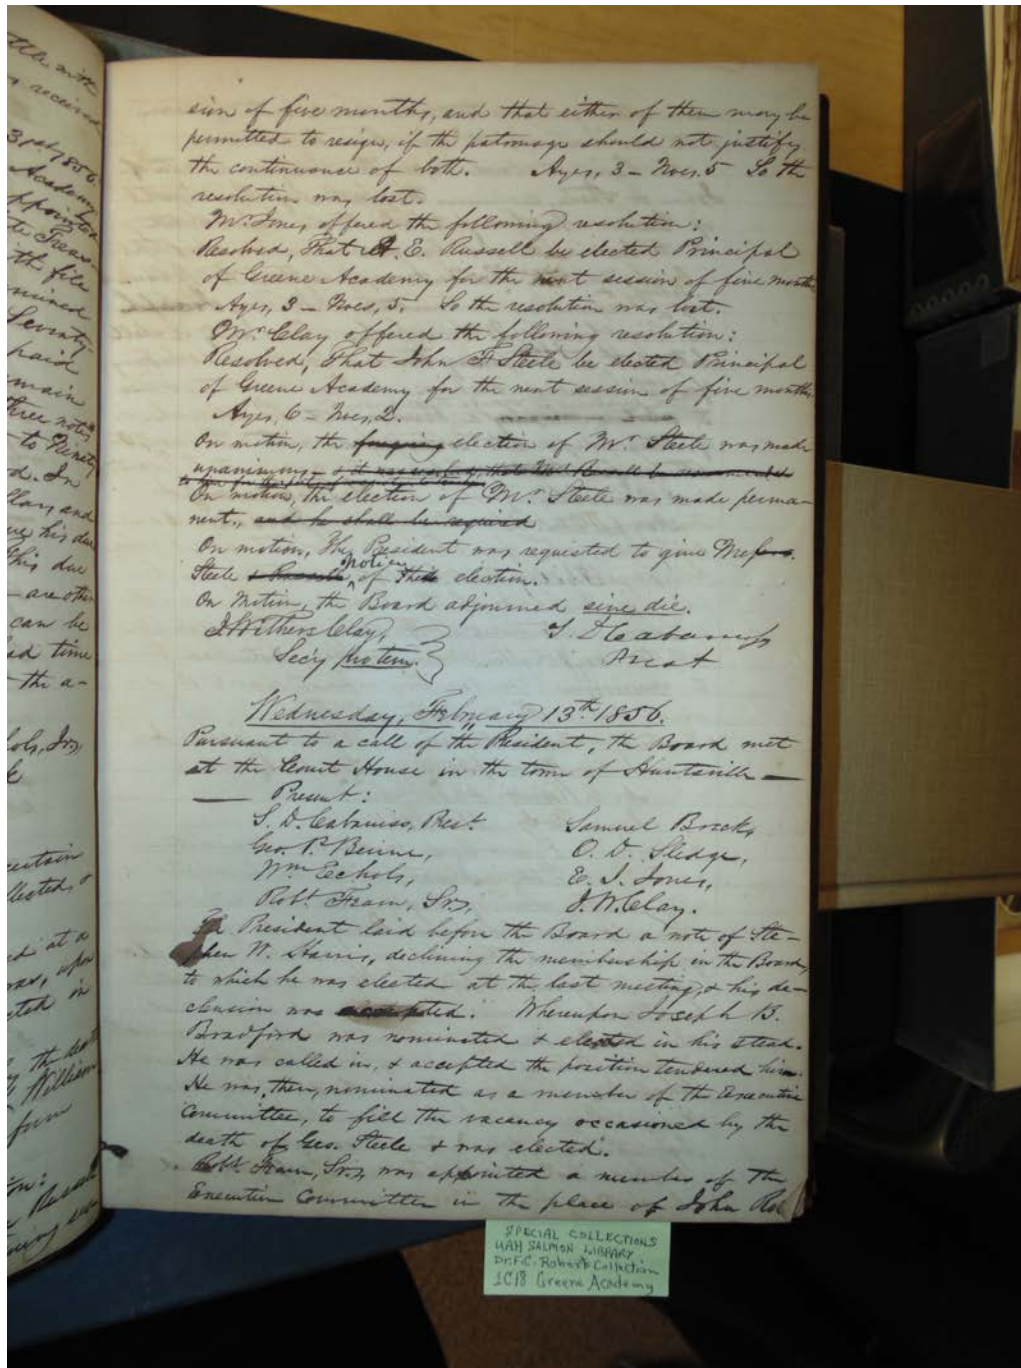 sion of five months, and that either of them may be
permitted to resign, if the patronage should not justify
the continuance of both. Ayes, 3 – Noes, 5 So the
resolution was lost.
Mr. Jones offered the following resolution:
Resolved, That A. E. Russell be elected Principal
of Greene Academy for the next session of five months.
Ayes, 3 – Noes, 5. So the resolution was lost.
Mr. Clay offered the following resolution:
Resolved, That John F. Steele be elected Principal
of Greene Academy for the next session of five months.
Ayes, 6 – Noes, 2.
On motion, the foregoing election of Mr. Steele was made
unanimous – & it was resolved, that Mr. Russell be recommended
On motion, the election of Mr. Steele was made perma-
nent., and he shall be required
On motion, The President was requested to give Messrs.
Steele & Russell, notice of this election.
On Motion, the Board adjourned sine die.
J. Withers Clay, S. D. Cabaniss
Sec'y pro tem. Prest
Wednesday, February 13th. 1856.
Pursuant to a call of the President, the Board met
at the Court House in the town of Huntsville —
— Present:
S. D. Cabaniss, Prest. Samuel Breck,
Geo. P. Beirne, O. D. Sledge,
Wm Echols, E. J. Jones,
Robt. Fearn, Sr., J. W. Clay.
The President laid before the Board a note of Ste-
phen W. Harris, declining the membership in the Board,
to which he was elected at the last meeting, & his de-
clension was accepted. Whereupon Joseph B.
Bradford was nominated & elected in his stead.
He was called in, & accepted the position tendered him.
He was, then, nominated as a member of the Executive
Committee, to fill the vacancy occasioned by the
death of Geo. Steele & was elected.
Robt. Fearn, Sr., was appointed a member of the
Executive Committee in the place of John Rob
SPECIAL COLLECTIONS
UAH SALMON LIBRARY
Dr. F.C. Roberts Collection
1C18 Greene Academy